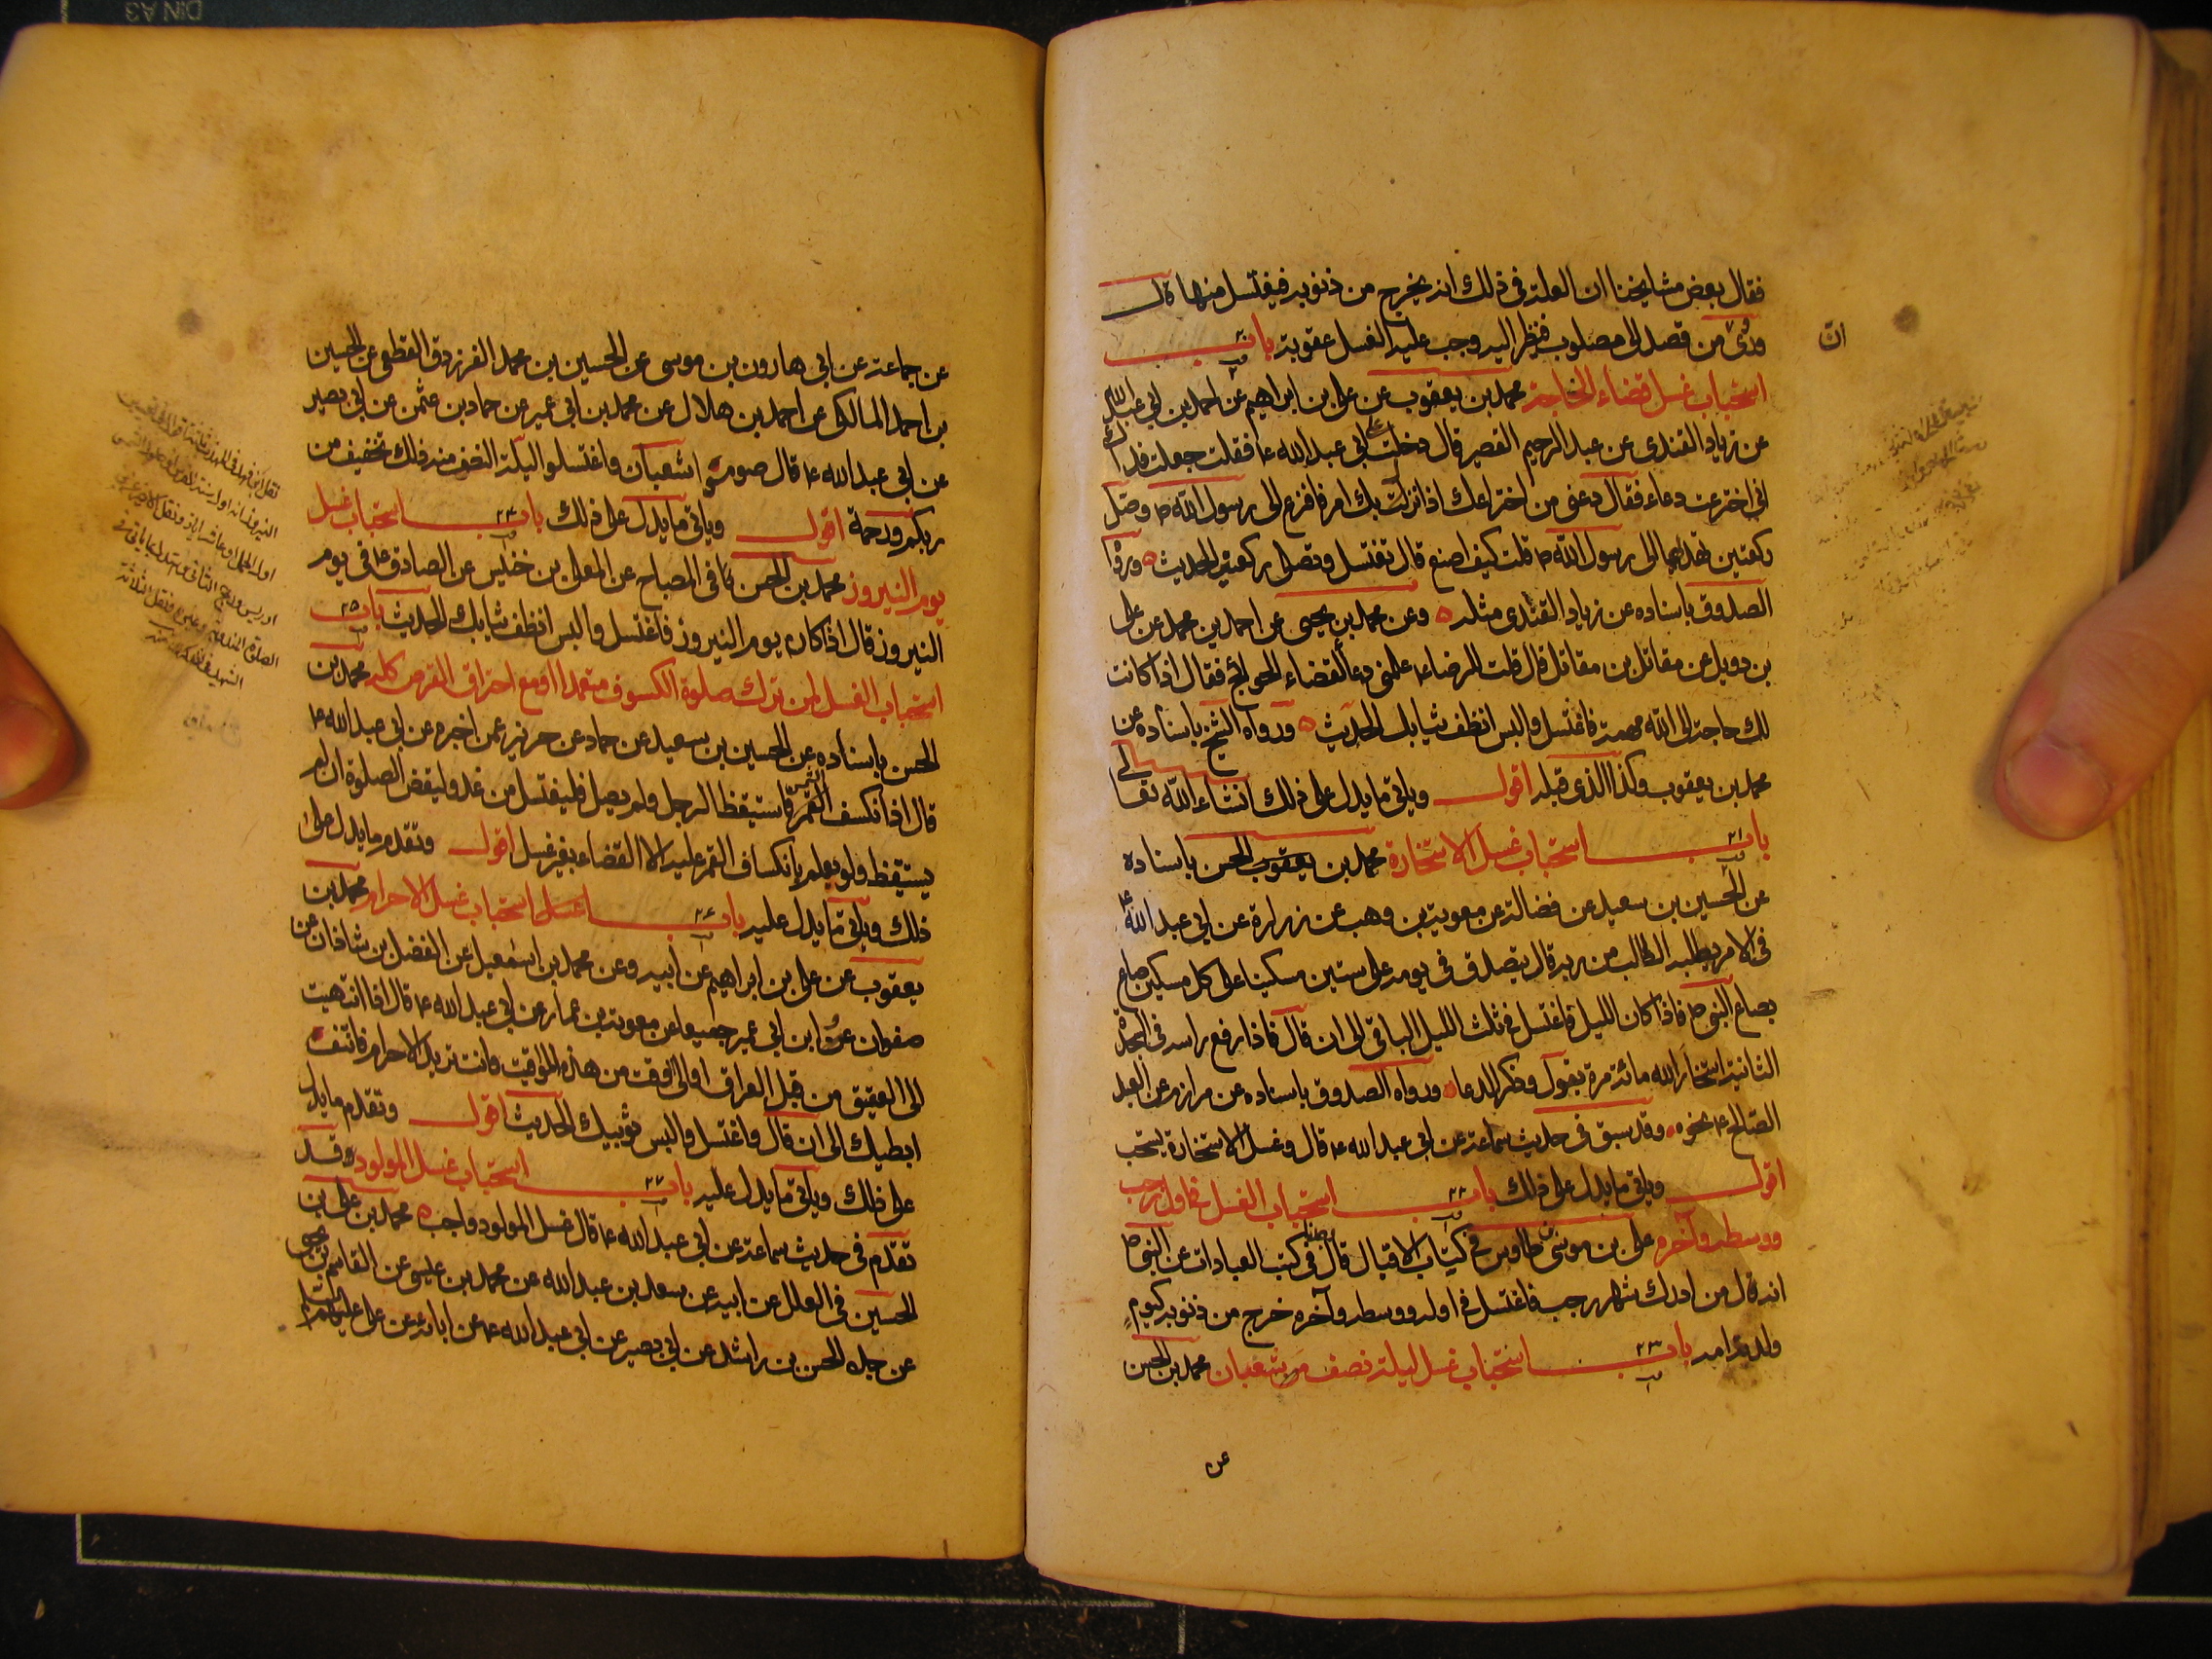 فقال بعض مشايخنا ان العلة في ذلك انه يخرج من ذنوبه فيغتسل منها قال
وروى من قصد الى مصلوب فنظر اليه وجب عليه الغسل عقوبة باب ٢٠
ان
استحباب غسل قضاء الحاجة محمد بن يعقوب عن على بن ابراهيم عن احمد بن ابي عبد الله
عن زياد القندى عن عبد الرحيم القصير قال دخلت على ابي عبد الله ع فقلت جعلت فداك
اني اخترعت دعاء فقال دعنى من اختراعك اذا نزلت بك امر فافزع الى رسول الله ص وصل
ركعتين تهديهما الى رسول الله ص قلت كيف اصنع قال تغتسل وتصلى ركعتين الحديث ورواه
الصدوق باسناده عن زياد القندى مثله وعن محمد بن يحيى عن احمد بن محمد عن على
بن دويل عن مقاتل بن مقاتل قال قلت للرضا ع علمنى دعاء لقضاء الحوايج فقال اذا كانت
لك حاجة الى الله مهمة فاغتسل والبس انظف ثيابك الحديث ورواه الشيخ باسناده عن
محمد بن يعقوب وكذا الذى قبله اقول وياتي ما يدل على ذلك انشاء الله تعالى
باب ٢١ استحباب غسل الاستخارة محمد بن يعقوب الحسن باسناده
عن الحسين بن سعيد عن فضالة عن معوية بن وهب عن زرارة عن ابي عبد الله ع
في الامر يطلبه الطالب من ربه قال يتصدق في يومه على ستين مسكينا على كل مسكين صاع
بصاع النبي ص فاذا كان الليل فاغتسل في ثلث الليل الباقي الى ان قال فاذا رفع راسه في السجدة
الثانية استخار الله مائة مرة يقول وذكر الدعا ورواه الصدوق باسناده عن مرازم عن العبد
الصالح ع نحوه وقد سبق في حديث سماعة عن ابي عبد الله ع قال وغسل الاستخارة يستحب
اقول وياتي ما يدل على ذلك باب ٢٢ استحباب الغسل في اول رجب
ووسطه وآخره على بن موسى بن طاوس في كتاب الاقبال قال في كتب العبادات عن النبي ص
انه قال من ادرك شهر رجب فاغتسل في اوله ووسطه وآخره خرج من ذنوبه كيوم
ولدته امه باب ٢٣ استحباب غسل ليلة نصف من شعبان محمد بن الحسن
عن
عن جماعة عن ابي هارون بن موسى عن الحسين بن محمد الفرزدق القطعى عن الحسين
بن احمد المالكى عن احمد بن هلال عن محمد بن ابي عمير عن حماد بن عثمن عن ابي بصير
عن ابي عبد الله ع قال صوموا شعبان واغتسلوا ليلة النصف منه ذلك تخفيف من
ربكم ورحمة اقول وياتي ما يدل على ذلك باب ٢٤ استحباب غسل
يوم النيروز محمد بن الحسن في المصباح عن المعلى بن خنيس عن الصادق ع في يوم
النيروز قال اذا كان يوم النيروز فاغتسل والبس انظف ثيابك الحديث باب ٢٥
استحباب الغسل لمن ترك صلوة الكسوف متعمدا مع احتراق القرص كله محمد بن
الحسن باسناده عن الحسين بن سعيد عن حماد عن حريز عمن اخبره عن ابي عبد الله ع
قال اذا انكسف القمر فاستيقظ الرجل ولم يصل فليغتسل من غد وليقض الصلوة ان لم
يستيقظ ولم يعلم بانكساف القمر عليه الا القضاء بغير غسل اقول وتقدم ما يدل على
ذلك وياتي ما يدل عليه باب ٢٦ استحباب غسل الاحرام محمد بن
يعقوب عن على بن ابراهيم عن ابيه وعن محمد بن اسمعيل عن الفضل بن شاذان عن
صفوان وعن ابن ابي عمير جميعا عن معوية بن عمار عن ابي عبد الله ع قال اذا انتهيت
الى العقيق من قبل العراق او الى الوقت من هذه المواقيت وانت تريد الاحرام فانتف
ابطيك الى ان قال واغتسل والبس ثوبيك الحديث اقول وتقدم ما يدل
على ذلك وياتي ما يدل عليه باب ٢٧ استحباب غسل المولود وقد
تقدم في حديث سماعة عن ابي عبد الله ع قال غسل المولود واجب محمد بن على بن
الحسين في العلل عن ابيه عن سعد بن عبد الله عن محمد بن عيسى عن القاسم بن يحيى
عن جده الحسن بن راشد عن ابي بصير عن ابي عبد الله ع عن ابائه عن على عليهم السلام